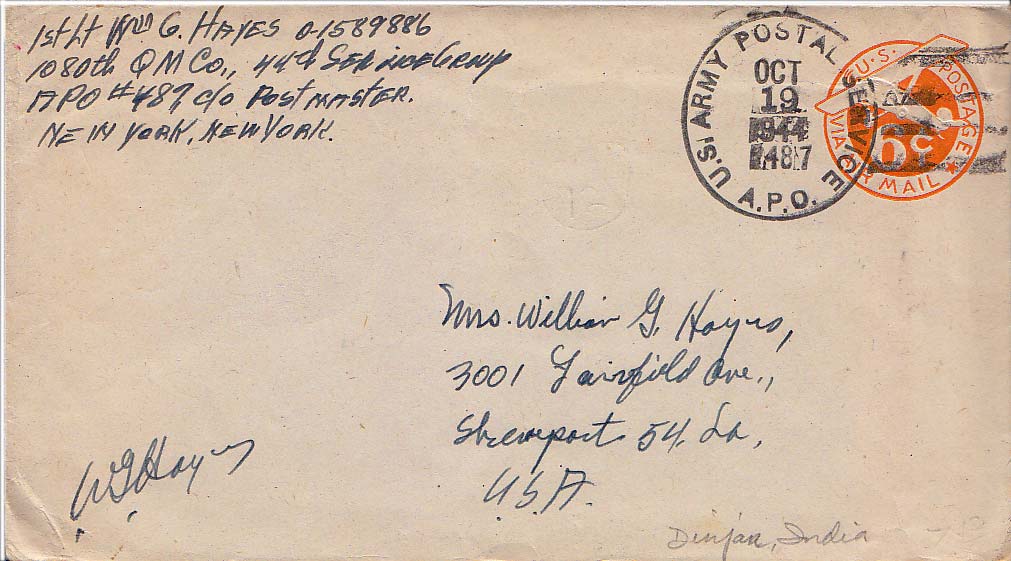 1st Lt Wm G. HAYES O-1589886
1080th QM Co., 44th SERVICE GROUP
APO #487 c/o POSTMASTER.
NEW YORK, NEW YORK.
U.S. ARMY POSTAL SERVICE
OCT
19
1944
487
A.P.O.
U.S. POSTAGE
6c
VIA AIR MAIL
Mrs. William G. Hayes,
3001 Fairfield Ave.,
Shreveport 54, La,
U.S.A.
WG Hayes
Dinjan, India